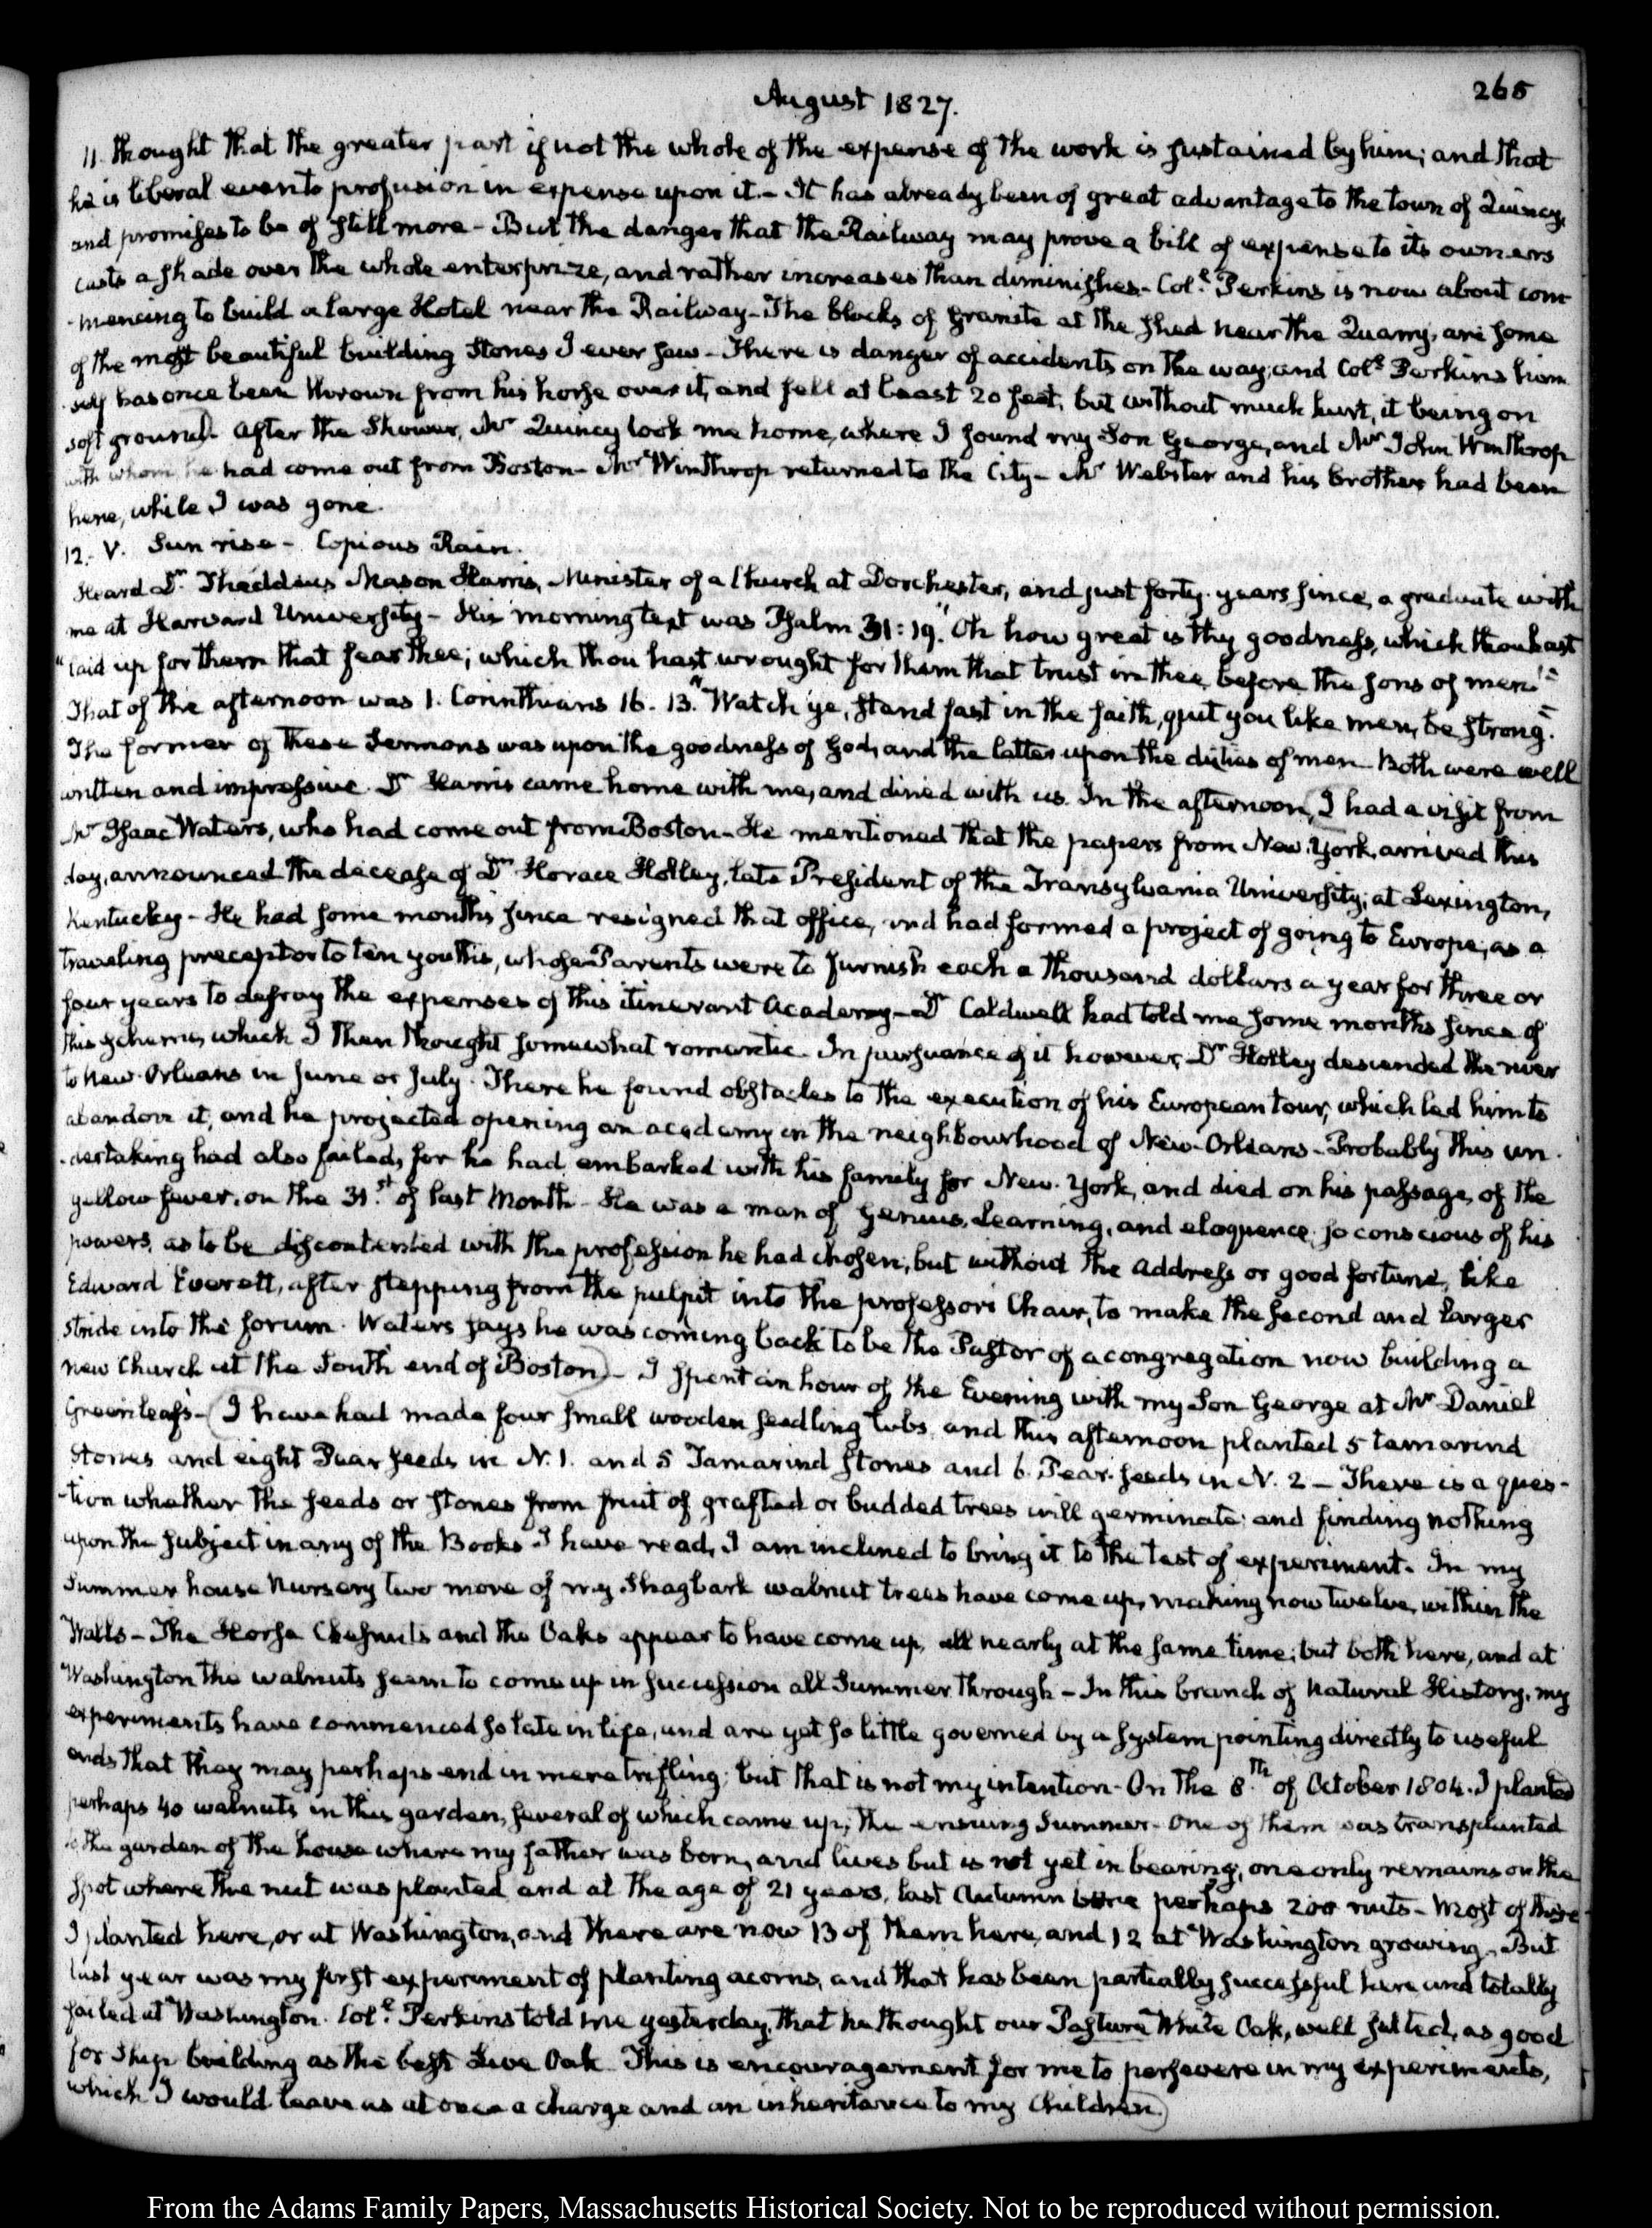 August 1827.
265
11. thought that the greater part if not the whole of the expense of the work is sustained by him; and that
he is liberal even to profusion in expense upon it.- It has already been of great advantage to the town of Quincy,
and promises to be of still more - But the danger that the Railway may prove a bill of expense to its owners
casts a shade over the whole enterprize, and rather increases than diminishes - Colº. Perkins is now about com
-mencing to build a large Hotel near the Railway - The blocks of Granite at the shed near the Quarry, are some
of the most beautiful building Stones I ever saw - There is danger of accidents on the way; and Colº Perkins him
-self has once been thrown from his horse over it, and fell at least 20 feet, but without much hurt, it being on
soft ground). After the Shower, Mr Quincy took me home, where I found my Son George, and Mr John Winthrop
with whom he had come out from Boston - Mr Winthrop returned to the City - Mr Webster and his brother had been
here, while I was gone.
12. V. Sun rise - Copious Rain.
Heard Dr Thaddeus Mason Harris, Minister of a Church at Dorchester, and just forty years since, a graduate with
me at Harvard University - His morning text was Psalm 31:19. "Oh how great is thy goodness, which thou hast
"laid up for them that fear thee; which thou hast wrought for them that trust in thee before the sons of men!"
That of the afternoon was 1. Corinthians 16. 13. "Watch ye, stand fast in the faith, quit you like men, be strong."
The former of these Sermons was upon the goodness of God, and the latter upon the duties of men Both were well
written and impressive. Dr Harris came home with me, and dined with us. In the afternoon, I had a visit from
Mr Isaac Waters, who had come out from Boston - He mentioned that the papers from New-York, arrived this
day, announced the decease of Dr Horace Holley, late President of the Transylvania University, at Lexington,
Kentucky - He had some months since resigned that office, and had formed a project of going to Europe, as a
travelling preceptor to ten youths, whose Parents were to furnish each a thousand dollars a year for three or
four years to defray the expenses of this itinerant Academy - Dr Caldwell had told me some months since of
this scheme, which I then thought somewhat romantic. In pursuance of it however, Dr Holley descended the river
to New-Orleans in June or July. There he found obstacles to the execution of his European tour, which led him to
abandon it, and he projected opening an academy in the neighbourhood of New-Orleans - Probably this un
-dertaking had also failed, for he had embarked with his family for New-York, and died on his passage, of the
yellow fever, on the 31.st of last Month - He was a man of Genius, Learning, and eloquence; so conscious of his
powers, as to be discontented with the profession he had chosen, but without the address or good fortune, like
Edward Everett, after stepping from the pulpit into the professors Chair, to make the second and larger
stride into the forum. Waters says he was coming back to be the Pastor of a congregation now building a
new Church at the South end of Boston) - I spent an hour of the Evening with my Son George at Mr Daniel
Greenleaf's - (I have had made four small wooden seedling tubs, and this afternoon planted 5 tamarind
Stones and eight Pear seeds in N. 1. and 5 Tamarind stones and 6 Pear-seeds in N. 2 - There is a ques-
-tion whether the seeds or stones from fruit of grafted or budded trees will germinate; and finding nothing
upon the subject in any of the Books I have read, I am inclined to bring it to the test of experiment. In my
Summer house Nursery two more of my Shagbark walnut trees have come up, making now twelve, within the
Walls - The Horse Chesnuts and the Oaks appear to have come up, all nearly at the same time; but both here, and at
Washington the walnuts seem to come up in succession all Summer through - In this branch of Natural History, my
experiments have commenced so late in life, and are yet so little governed by a system pointing directly to useful
ends that they may perhaps end in mere trifling; but that is not my intention - On the 8.th of October 1804. I planted
perhaps 40 walnuts in this garden, several of which came up, the ensuing Summer - One of them was transplanted
to the garden of the house where my father was born, and lives but is not yet in bearing; one only remains on the
spot where the nut was planted and at the age of 21 years, last Autumn bore perhaps 200 nuts - Most of these
I planted here, or at Washington, and there are now 13 of them here, and 12 at Washington growing. But
last year was my first experiment of planting acorns, and that has been partially successful here and totally
failed at Washington. Colº. Perkins told me yesterday, that he thought our Pasture White Oak, well salted, as good
for Ship building as the best Live Oak. This is encouragement for me to persevere in my experiments,
which I would leave as at once a charge and an inheritance to my Children)
From the Adams Family Papers, Massachusetts Historical Society. Not to be reproduced without permission.